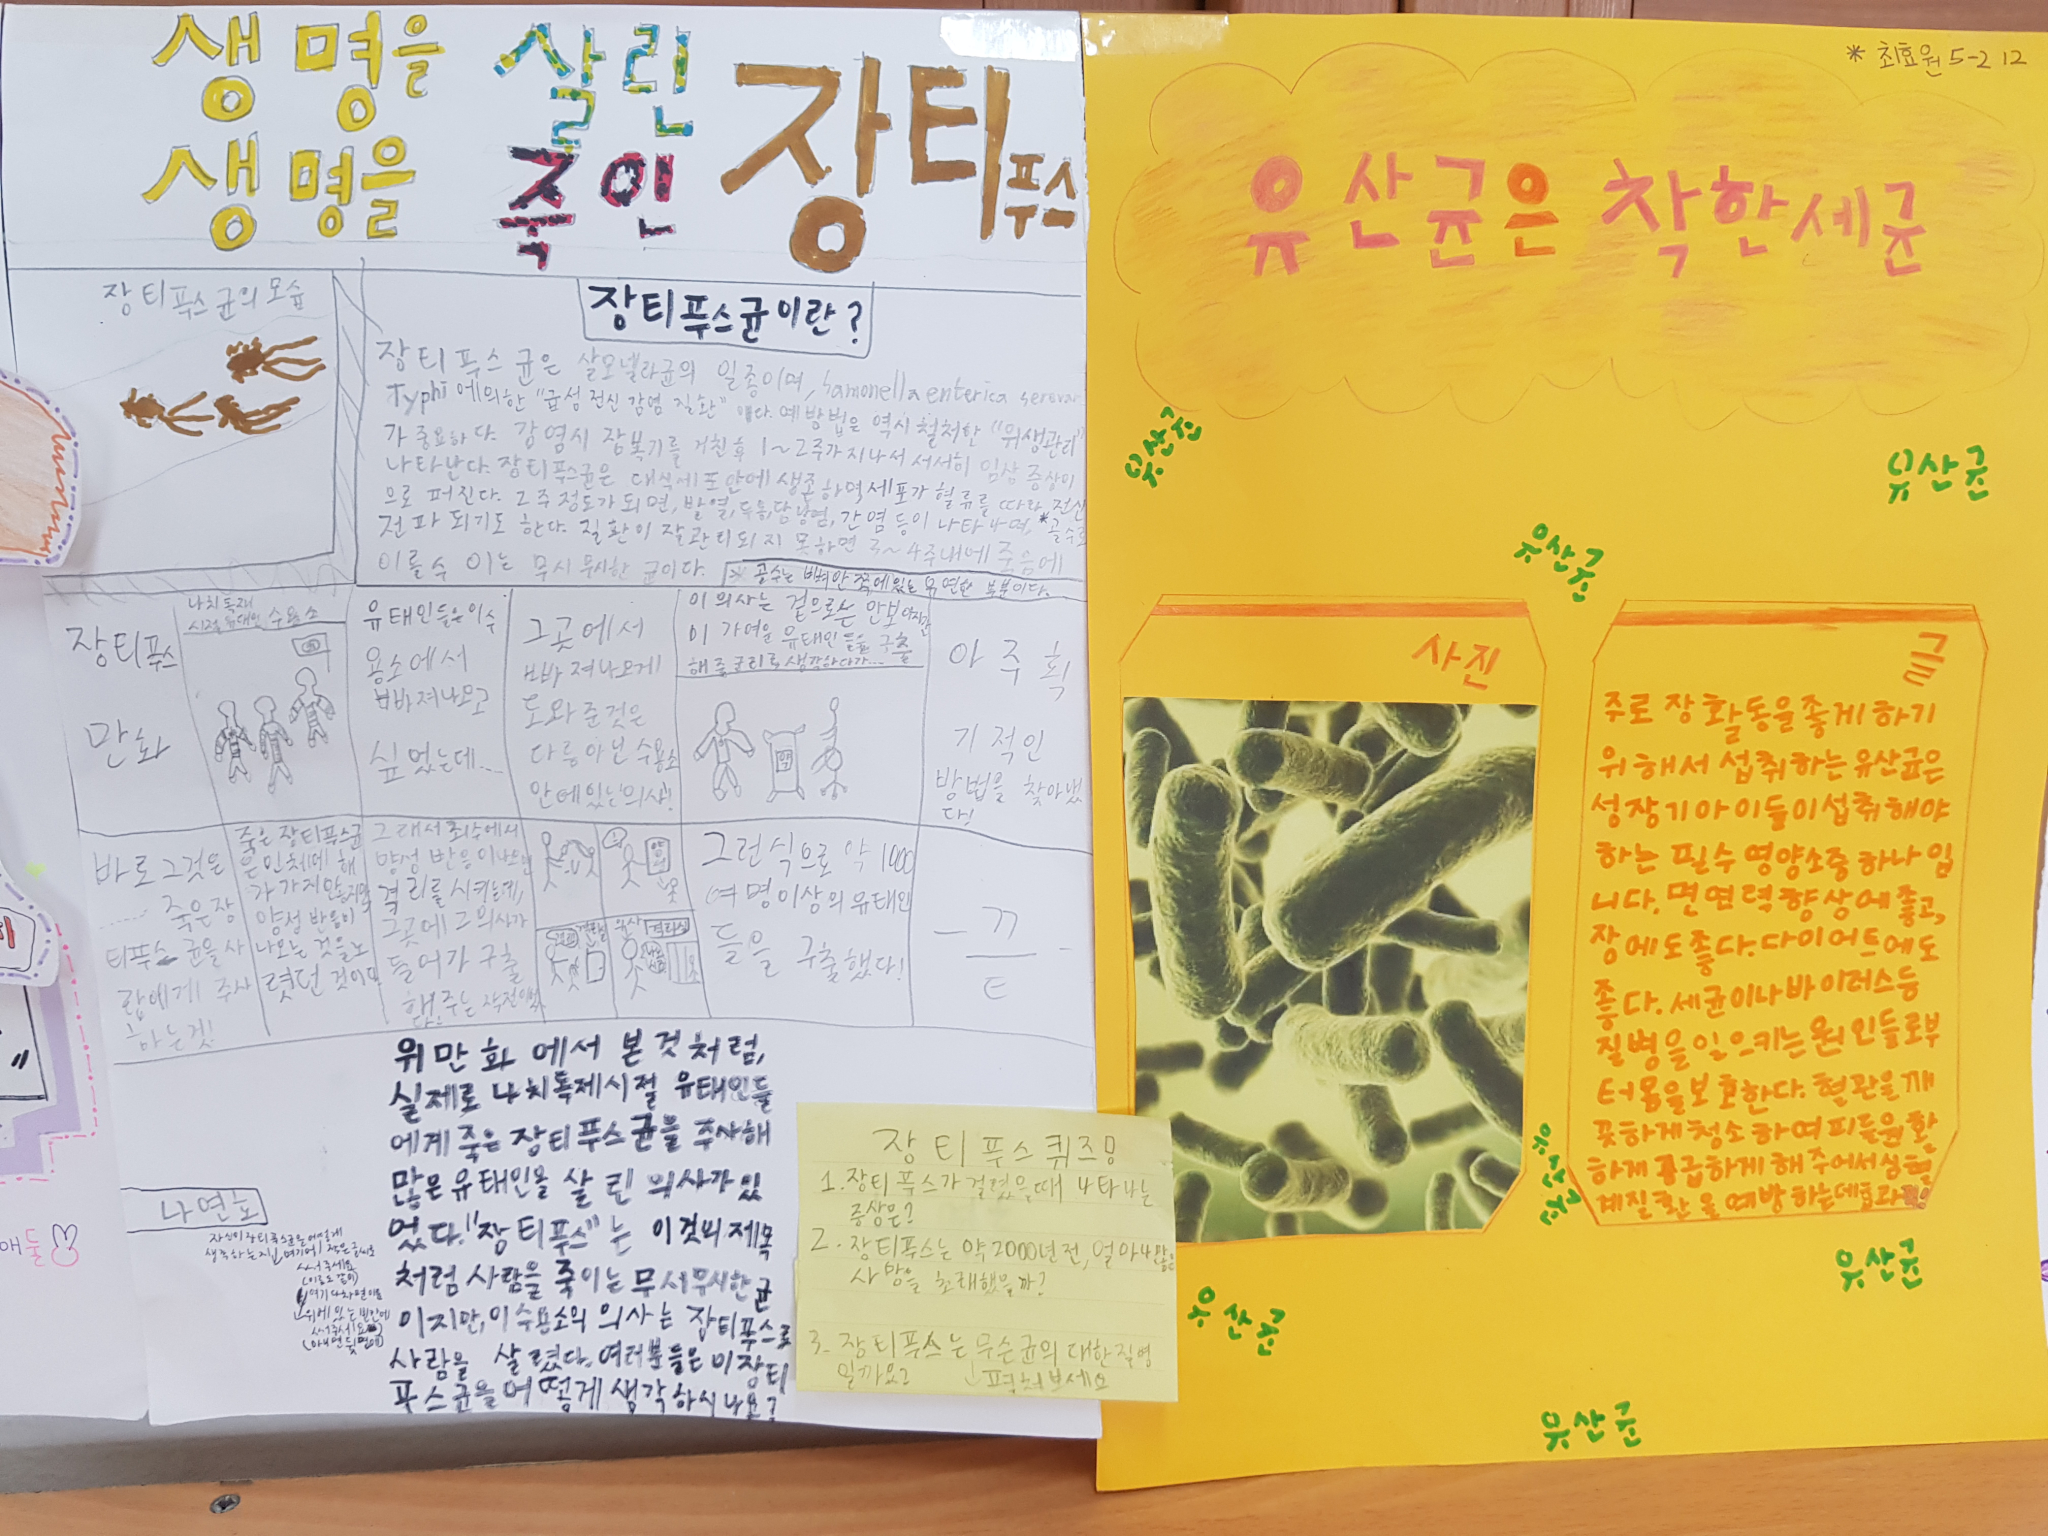 생명을 살린
생명을 죽인 장티푸스
장티푸스균의 모습
장티푸스균이란?
장티푸스 균은 살모넬라균의 일종이며, Samonella enterica serovar
Typhi에 의한 "급성 전신 감염 질환" 이다. 예방법은 역시 철처한 "위생관리"
가 중요하다. 감염시 잠복기를 거친 후 1~2주가 지나서 서서히 임상 증상이
나타난다. 장티푸스균은 대식세포안에 생존하며 세포가 혈류를 따라 전신
으로 퍼진다. 2주 정도가 되면, 발열, 두통, 담낭염, 간염 등이 나타나며, *골수로
전파 되기도 한다. 질환이 잘 관리되지 못하면 3~4주내에 죽음에
이를 수 이는 무시무시한 균이다.
* 골수는 뼈 안쪽에 있는 부분이다.
장티푸스
만화
나치독재
시절 유태인 수용소
유태인들은 이 수
용소에서
빠져나오고
싶었는데...
그곳에서
빠져나오게
도와준것은
다름아닌 수용소
안에있는 의사!
이 의사는 겉으로는 안보이지만
이 가여운 유태인들을 구출
해 줄거리를 생각하다가...
아주 획
기적인
방법을 찾아냈
다!
바로 그것은
...... 죽은 장
티푸스 균을 사
람에게 주사
하는 것!
죽은 장티푸스균
은 인체에 해
가 가지 않지만
양성 반응이
나오는 것을 노
렸던 것이다.
그래서 최수에서
양성 반응이 나오면
격리를 시키는데,
그곳에 그 의사가
들어가 구출
해주는 작전이었다.
그런식으로 약 1000
여 명이상의 유태인
들을 구출했다!
- 끄
ㅌ -
위 만화에서 본 것처럼,
실제로 나치독제시절 유태인들
에게 죽은 장티푸스균을 주사해
많은 유태인을 살린 의사가 있
었다. "장티푸스"는 이것의 제목
처럼 사람을 죽이는 무서무시한 균
이지만, 이 수용소의 의사는 장티푸스로
사람을 살렸다. 여러분들은 이 장티
푸스균을 어떻게 생각하시나요?
나연호
자신이 장티푸스균을 어떻게
생각하는지
써주세요
장티푸스 퀴즈!
1. 장티푸스가 걸렸을때 나타나는
증상은?
2. 장티푸스는 약 2000년전, 얼마나 많은
사망을 초래했을까?
3. 장티푸스는 무슨균의 대한질병
일까요?
↓펼쳐보세요
* 최효원 5-2 12
유산균은 착한세균
유산균
유산균
유산균
사진
글
주로 장 활동을 좋게 하기
위해서 섭취하는 유산균은
성장기 아이들이 섭취해야
하는 필수 영양소중 하나입
니다. 면연력 향상에 좋고,
장에도 좋다. 다이어트에도
좋다. 세균이나 바이러스 등
질병을 일으키는 원인들로부
터 몸을 보호한다. 혈관을 깨
끗하게 청소하여 피를 원활
하게 공급하게 해 주어서 심혈
계질환을 예방하는데 효과적
유산균
유산균
유산균
유산균